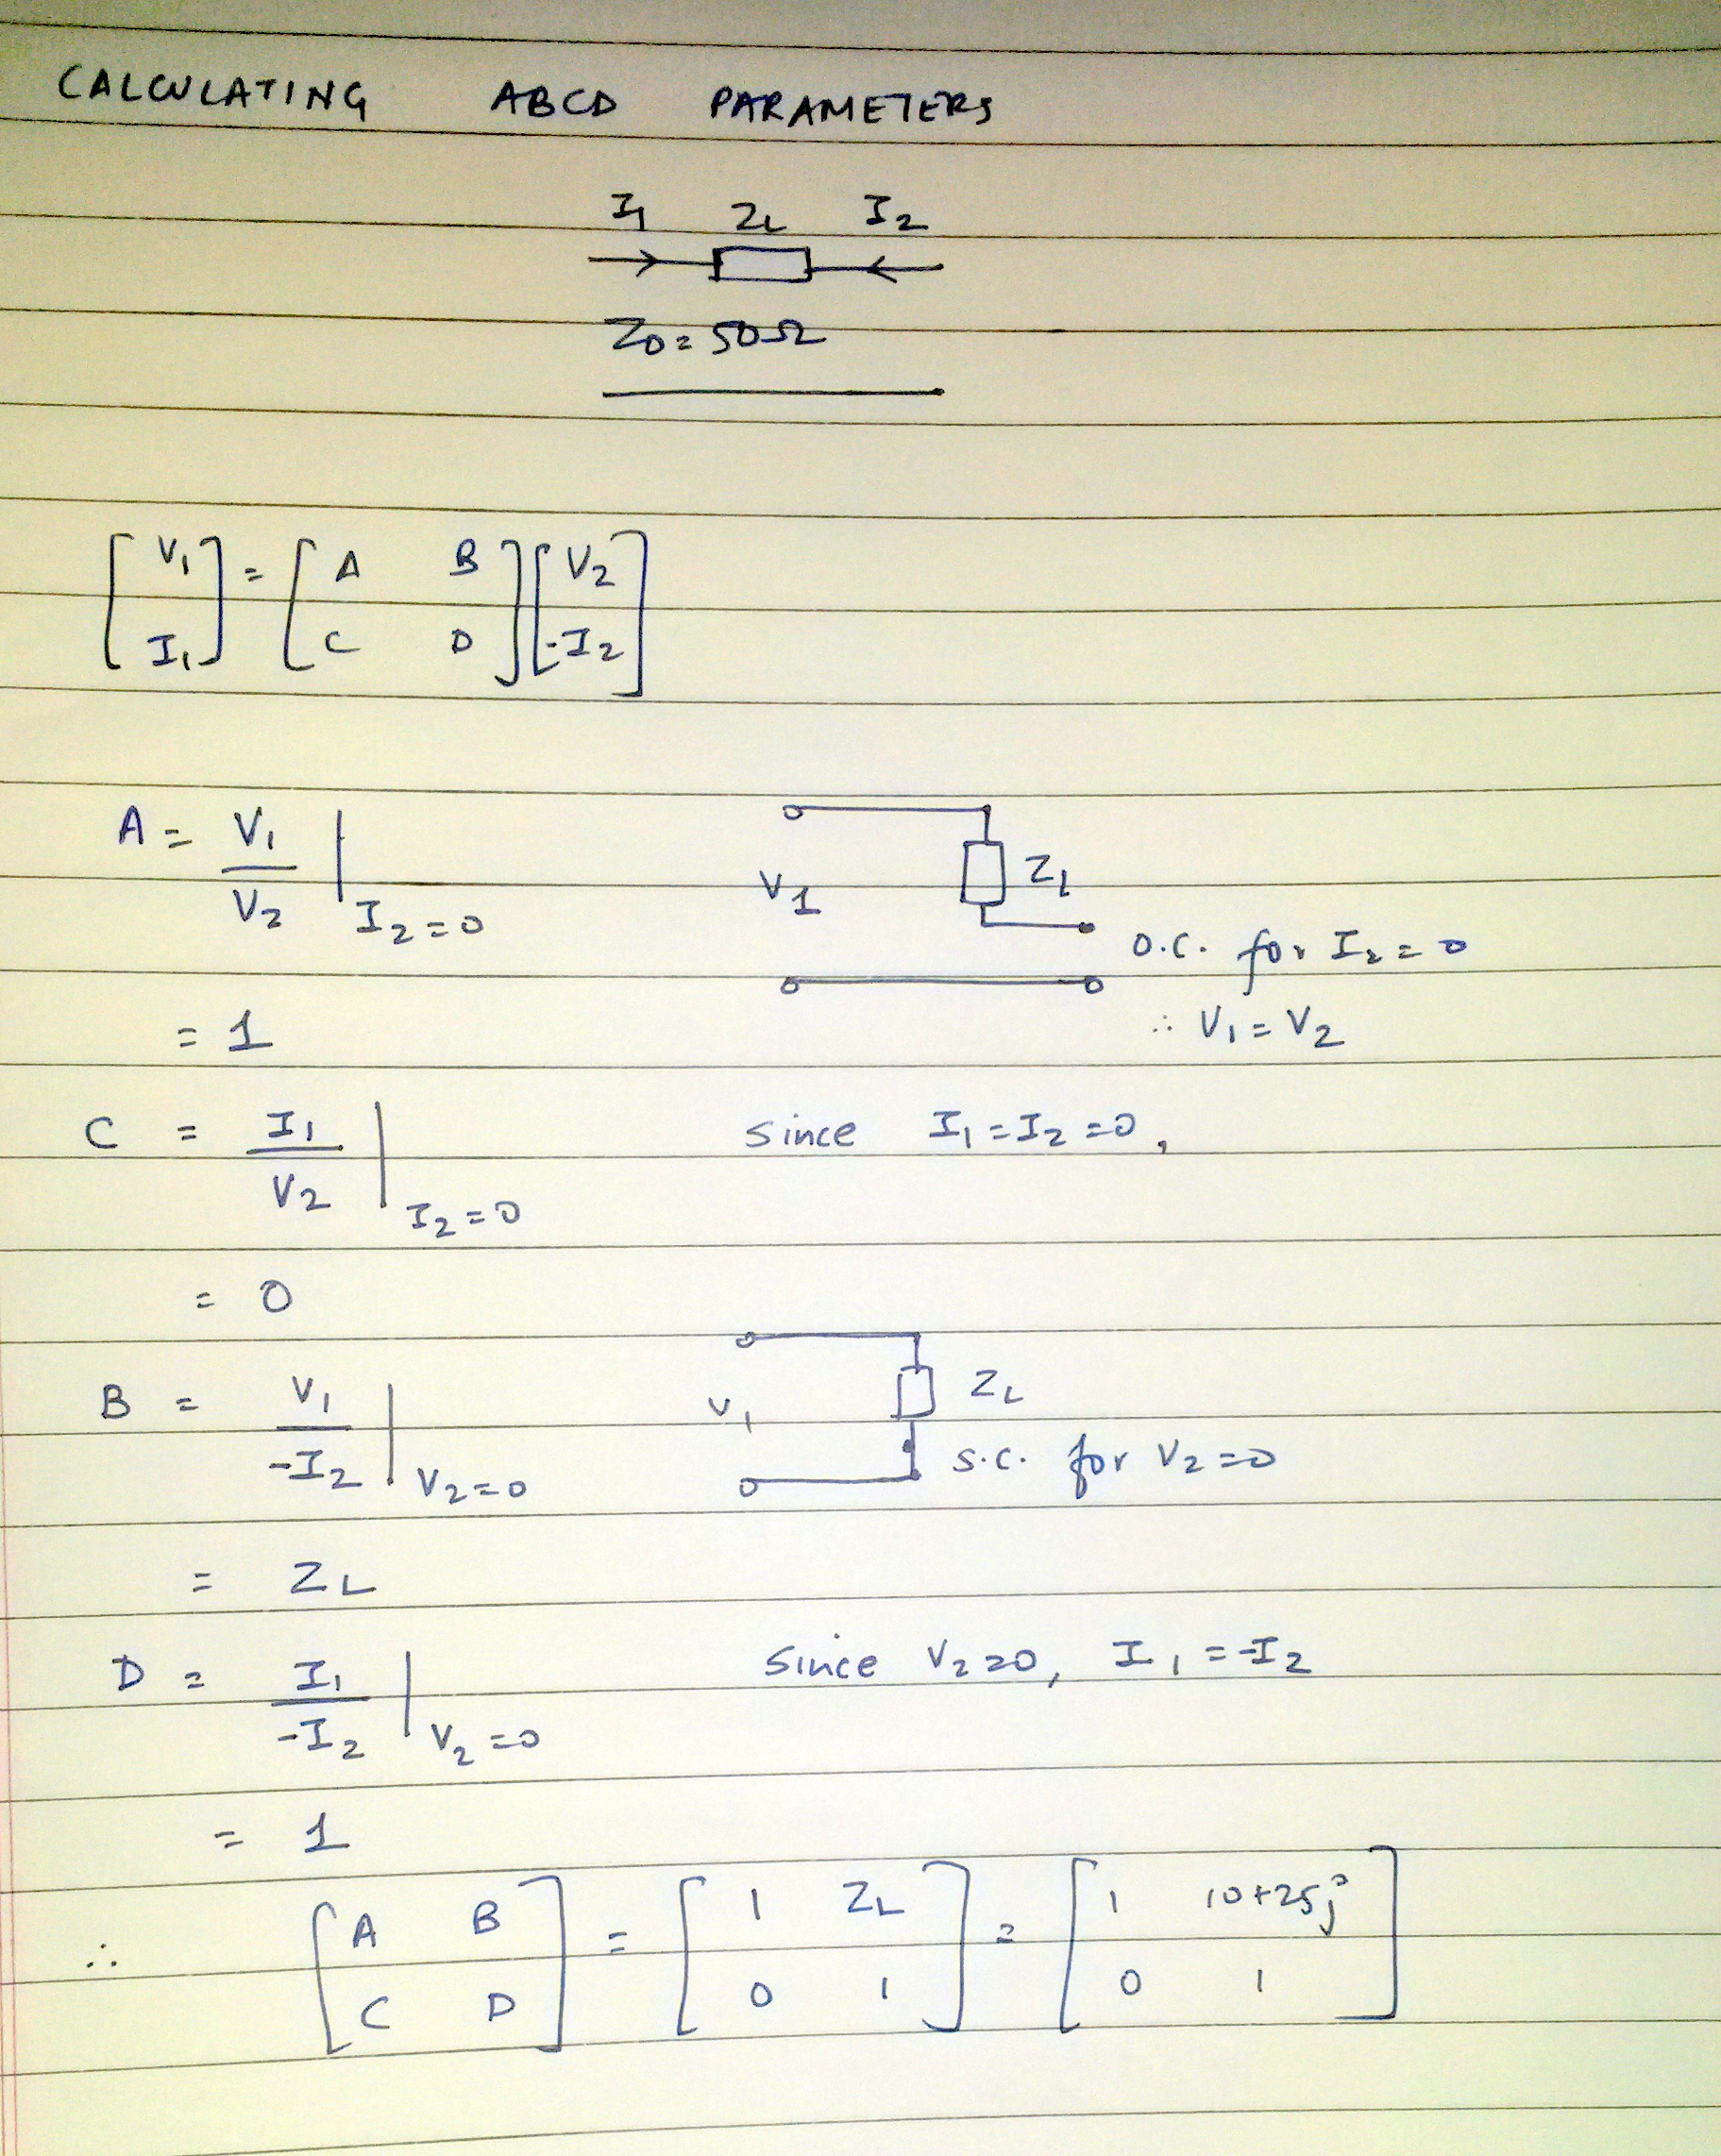 CALCULATING ABCD PARAMETERS
I1 ZL I2
Z0 = 50Ω
[V1 I1] = [A B C D] [V2 -I2]
A = V1/V2 | I2=0
V1 ZL
O.C. for I2=0
= 1
∴ V1 = V2
C = I1/V2 | I2=0 since I1 = I2 = 0,
= 0
B = V1/-I2 | V2=0
V1 ZL
S.C. for V2=0
= ZL
D = I1/-I2 | V2=0 since V2=0, I1 = -I2
= 1
∴ [A B C D] = [1 ZL 0 1] = [1 10+25j 0 1]